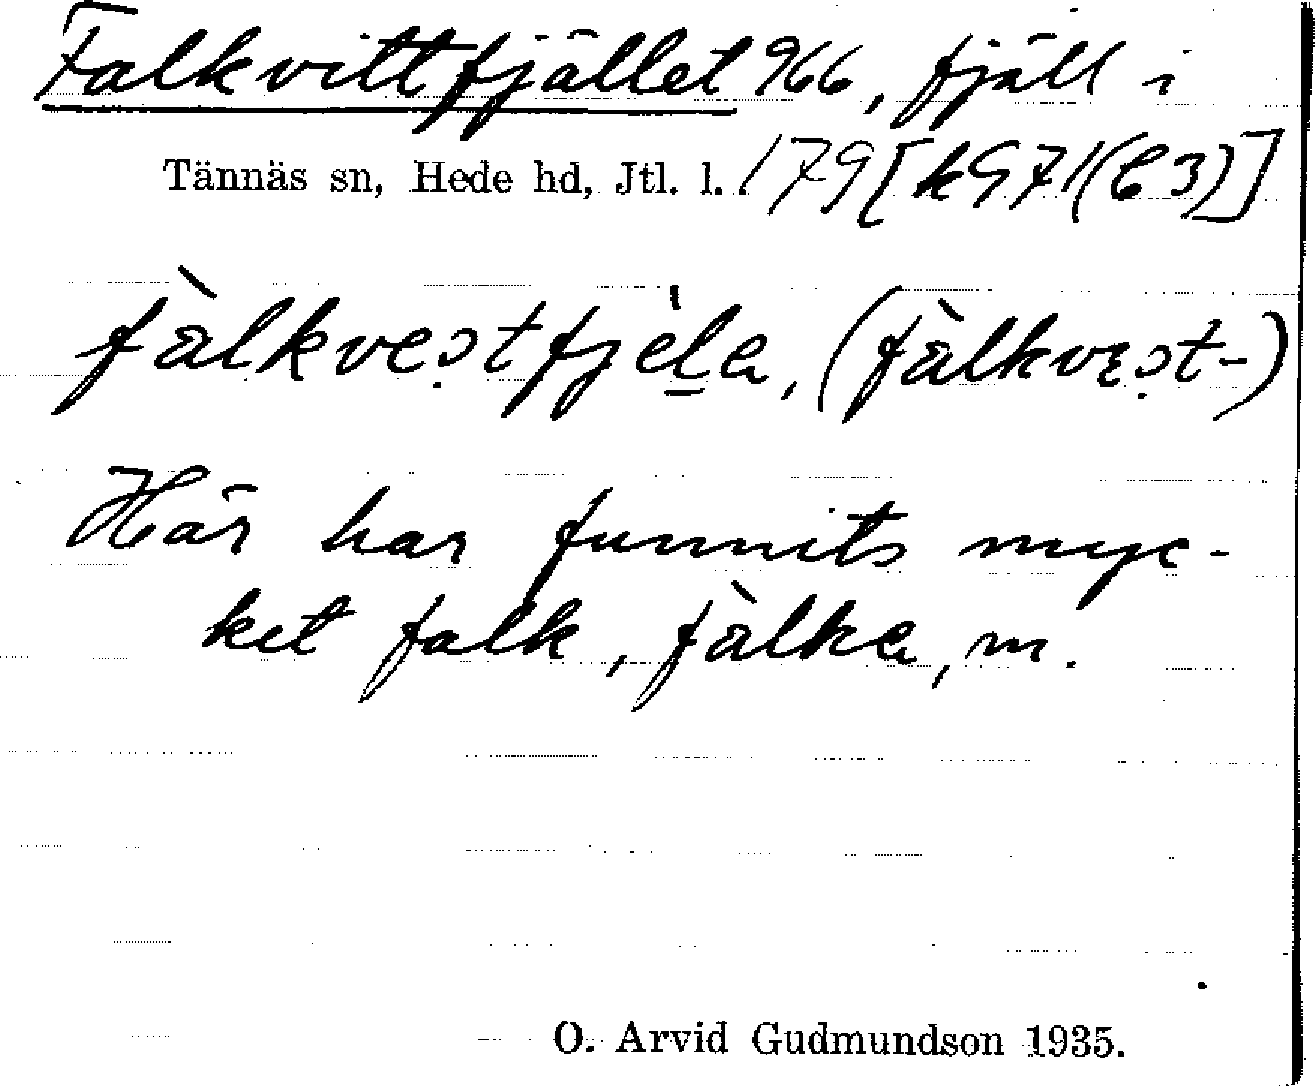 Falkvittfjället 966, fjäll i
Tännäs sn, Hede hd, Jtl. l. 179 [k971(C3)]
Här har funnits myc-
ket falk, fàlka, m.
O. Arvid Gudmundson 1935.